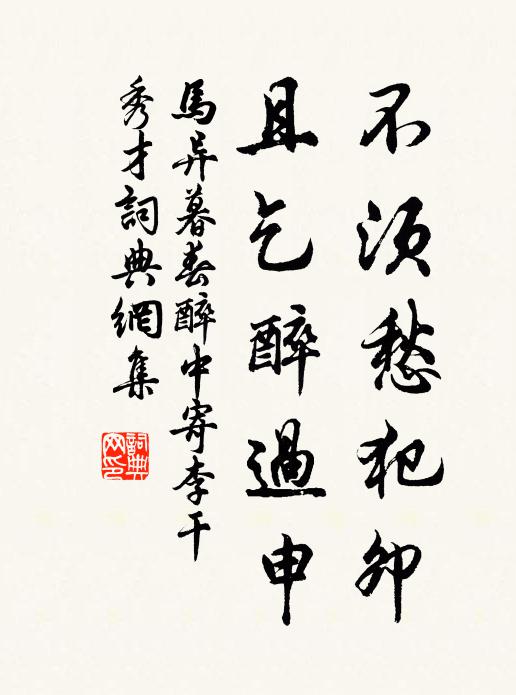 不須愁犯卯
且乞醉過申
馬异暮春醉中寄李干
秀才詞典網集
詞典網印